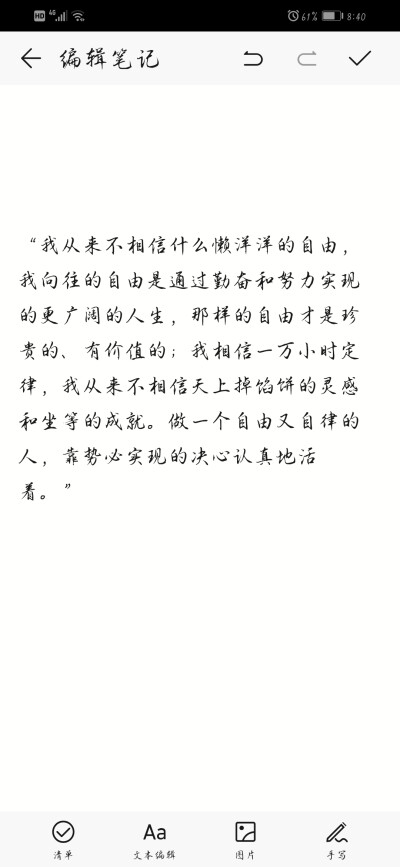 HD 4G 61% 8:40
编辑笔记
“我从来不相信什么懒洋洋的自由，
我向往的自由是通过勤奋和努力实现
的更广阔的人生，那样的自由才是珍
贵的、有价值的；我相信一万小时定
律，我从来不相信天上掉馅饼的灵感
和坐等的成就。做一个自由又自律的
人，靠势必实现的决心认真地活
着。”
清单 文本编辑 图片 手写
Aa